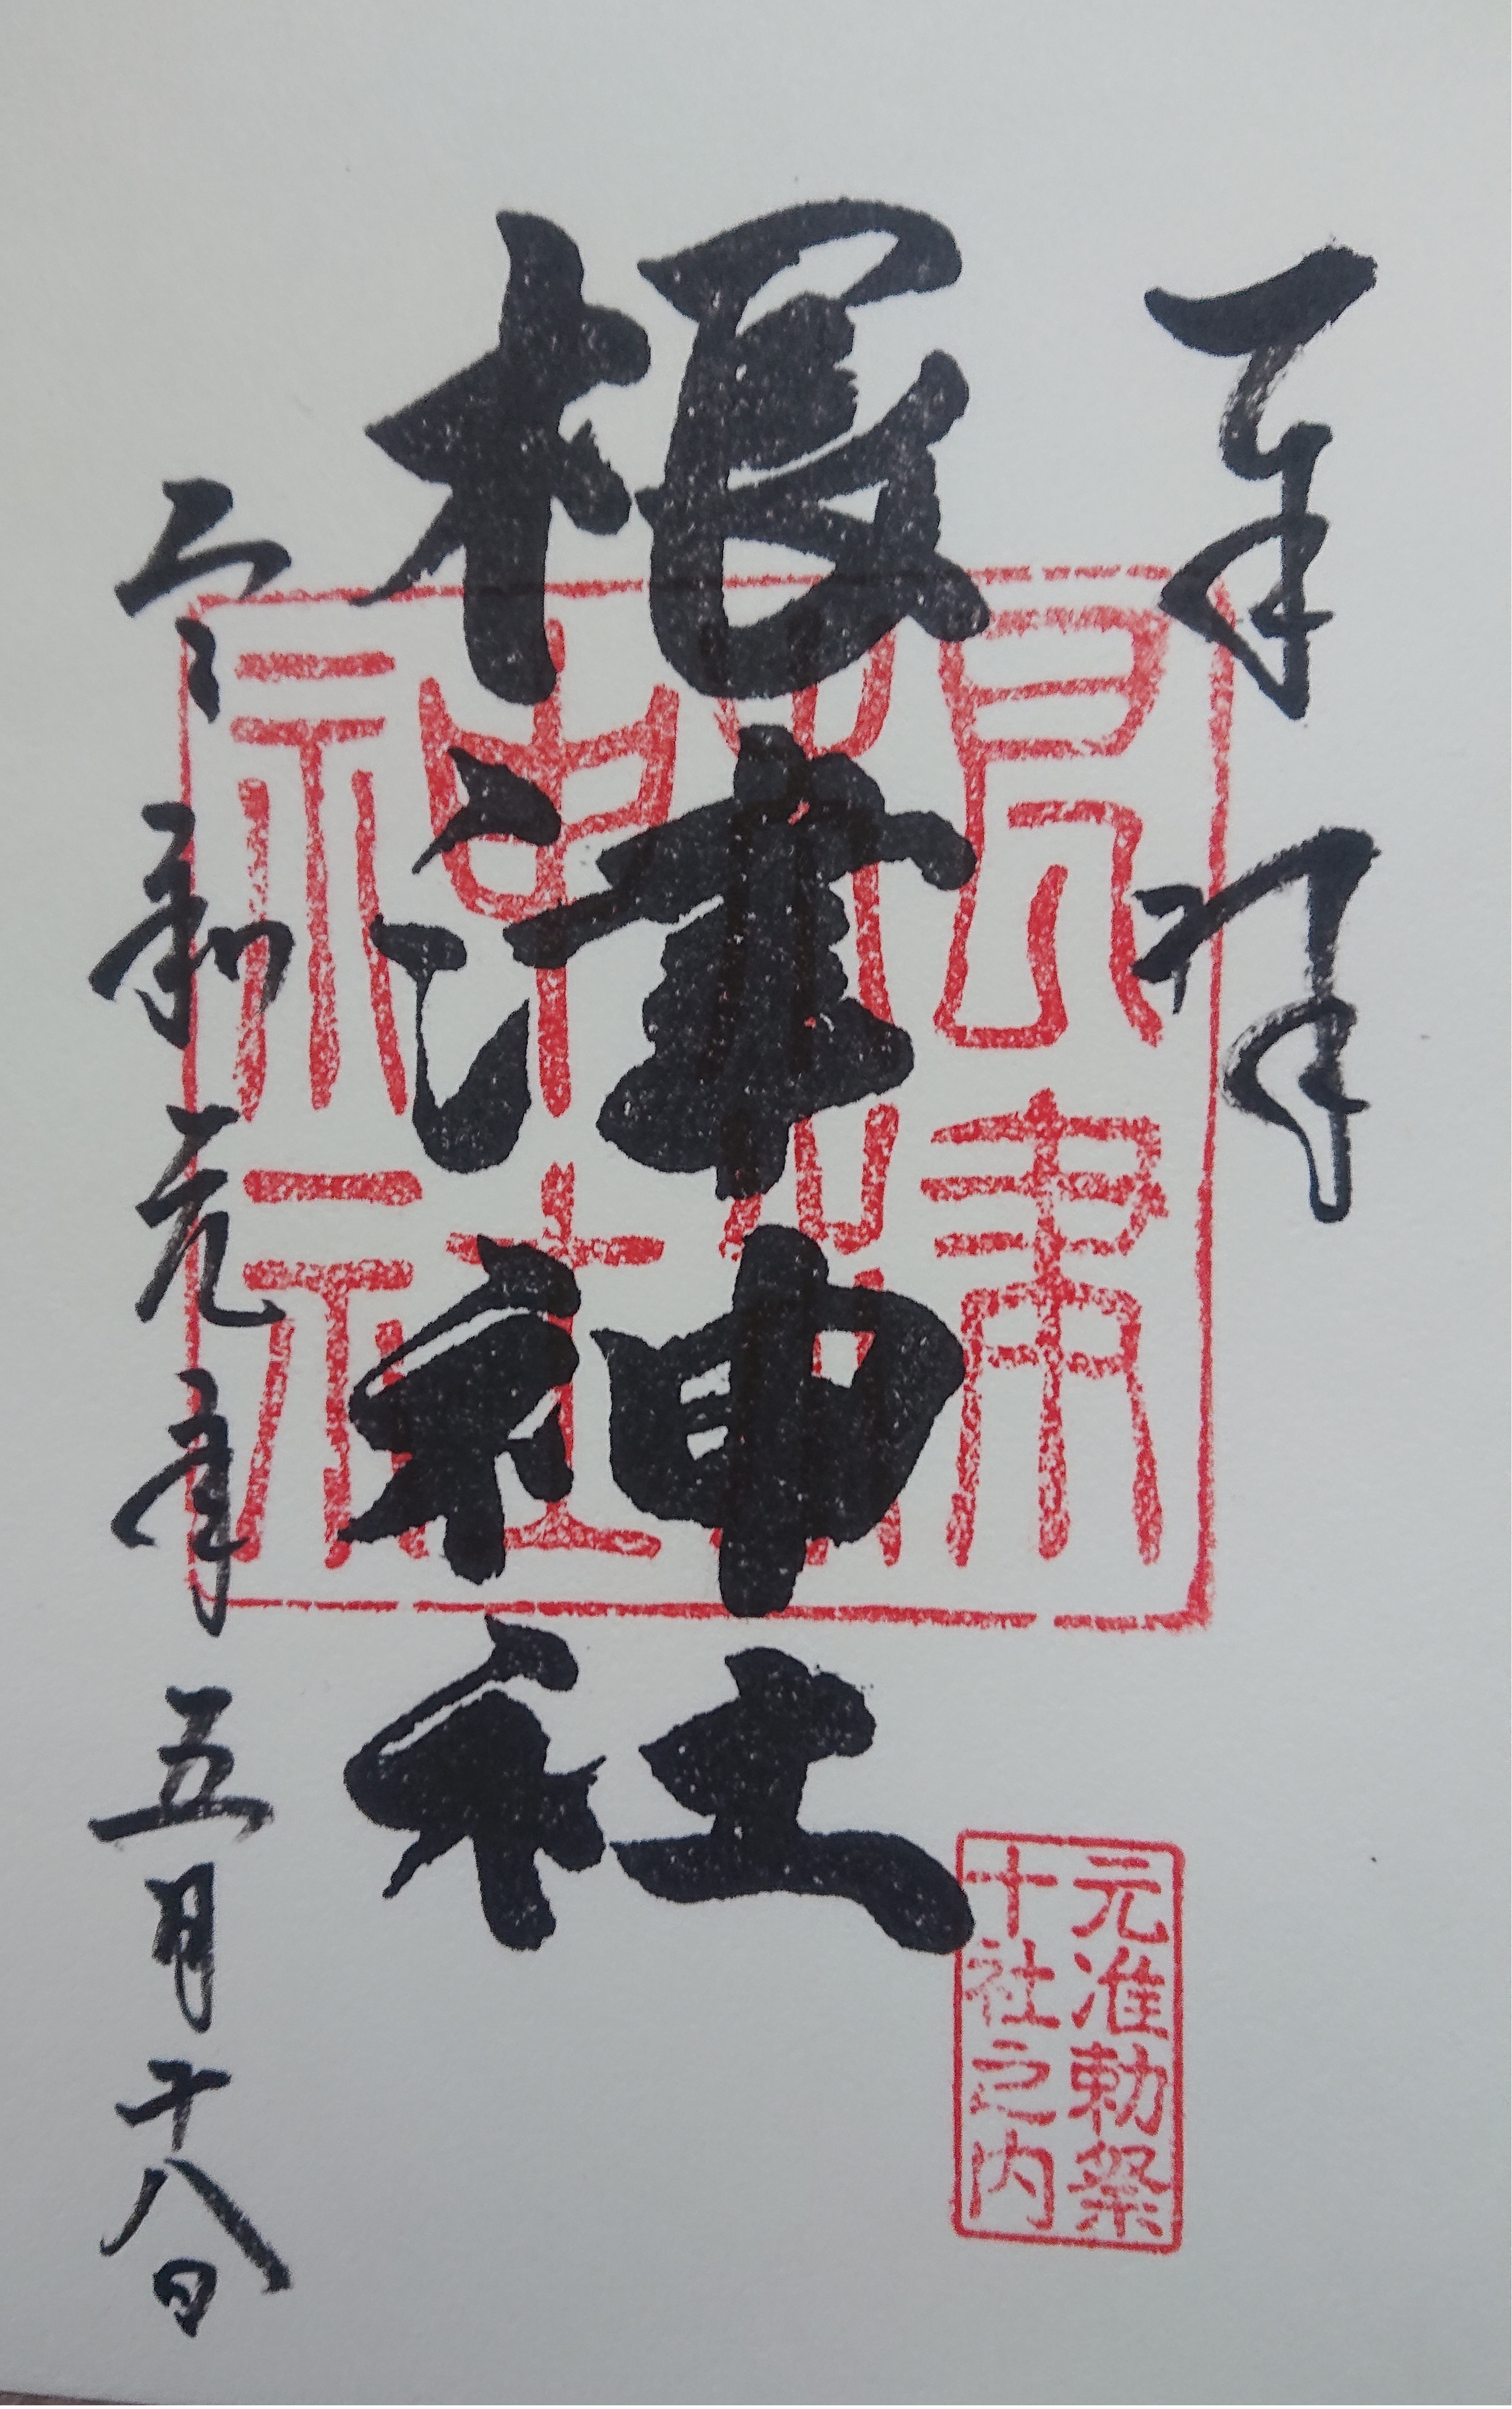 奉拝
根津神社
令和元年五月十八日
根津神社
元准勅祭
十社之内